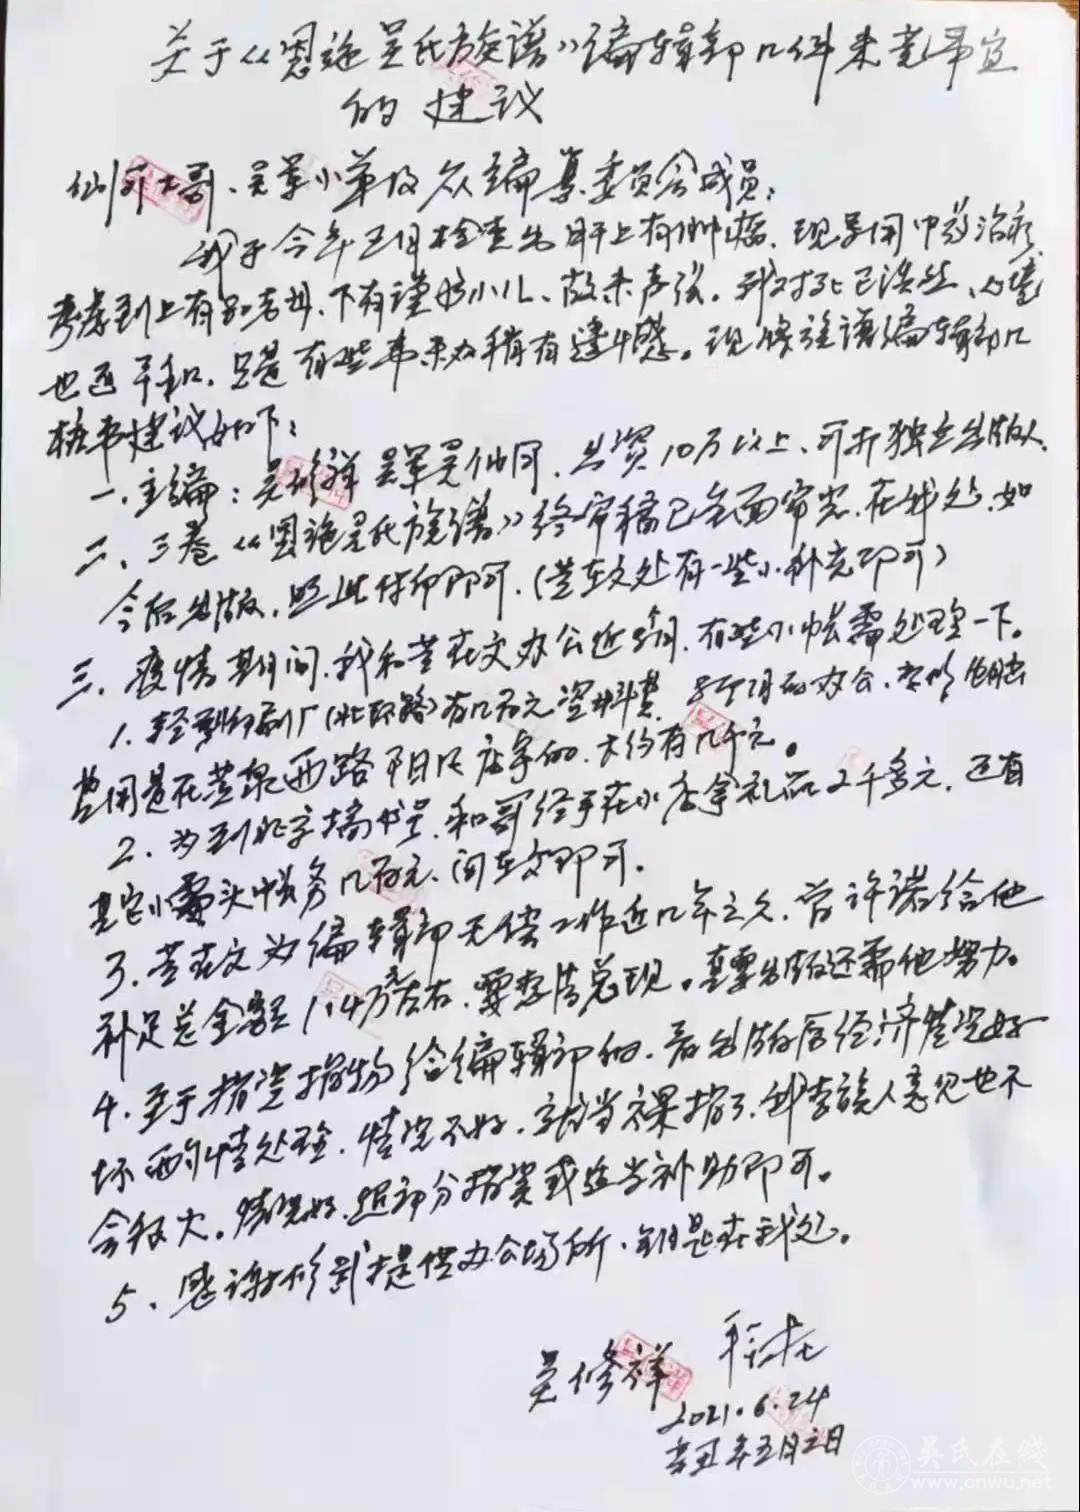 关于《恩施吴氏族谱》编辑部几件未竟事宜
的建议
仙阶大哥、吴军小弟及众编纂委员会成员：
我于今年五月检查出肝上有肿瘤，现采用中药治疗，
考虑到上有老母、下有小儿，故未声张。我对死已淡然，心境
也还平和，只是有些事未办稍有遗憾。现将族谱编辑部几
桩事建议如下：
一、主编：吴修祥 吴军 吴仙阶，出资10万以上，可井独立出版人。
二、三卷《恩施吴氏族谱》终审稿已全面审完，在我处，如
今后出版，照此付印即可，（莹在文处有一些小补充即可）
三、疫情期间，我和在文办公近，有些小帐需处理一下。
1、印刷厂（北环路）有几百元资料费，办公、
费用是在西路店拿的，大约有几千元。
2、为到北京搞书号，和哥经手在小店拿礼品2千多元，还有
其它小零头帐务几百元、问在文即可。
3、在文为编辑部无偿工作近几年之久，曾许诺给他
补足总金额1.4万元左右，要想法兑现。真要出版还需他努力。
4、至于捐资捐物给编辑部的，若出版后经济情况好
坏酌情处理，情况不好，就当裸捐了，我李族人意见也不
会很大。情况好，退部分捐资或适当补助即可。
5、感谢修武提供办公场所，钥匙在我处。
吴修祥
2021.6.24
辛丑年五月之日
吴氏在线
www.cnwu.net